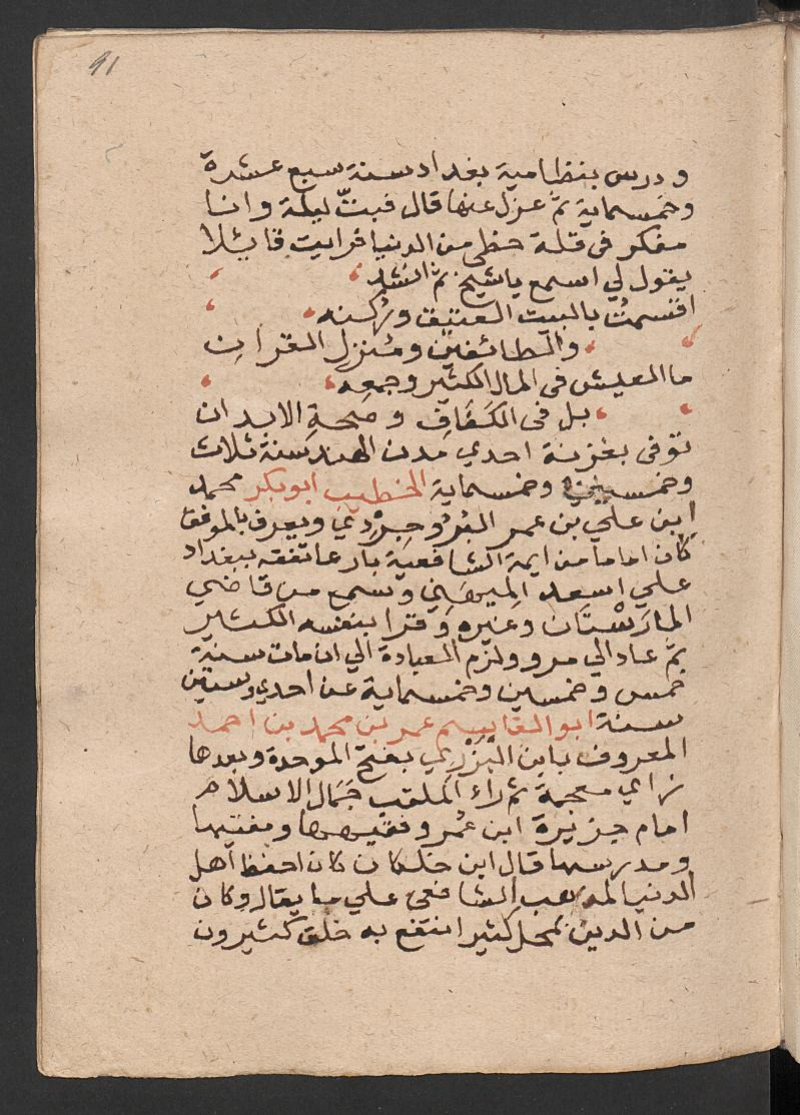 91
ودرس بنظامية بغداد سنة سبع عشرة
وخمسماية ثم عزل عنها قال فبتّ ليلة وانا
مفكر في قلة حظي من الدنيا فرايت قايلا
يقول لي اسمع ياشيخ ثم انشد
اقسمتُ بالبيت العتيق وركنه
والطائفين ومُنزِلِ القران
ما العيش في المال الكثير وجمعه
بل في الكَفَافِ وصحةِ الابدان
توفى بغزنة احدي مدن الهند سنة ثلاث
وخمسين وخمسماية الخطيب ابو بكر محمد
ابن علي بن عمر البُرُوجِرْدِي ويعرف بالموفق
كان اماما من ايمة الشافعية بارعا تفقه ببغداد
علي اسعد المِيهَني وسمع من قاضي
المارَسْتَان وغيره وقرا بنفسه الكثير
ثم عاد الي مرو ولزم العبادة الي ان مات سنة
خمس وخمسين وخمسماية عن احدي وستين
سنة ابو القاسم عمر بن محمد بن احمد
المعروف بابن البَزْرِي بفتح الموحدة وبعدها
زاي معجمة ثم راء الملقب جَمَال الاسلام
امام جزيرة ابن عُمر وفقيهها ومفتيها
ومدرسها قال ابن خلكان كان احفظ اهل
الدنيا لمذهب الشافعي علي ما يقال وكان
من الدين بمحل كبير انتفع به خلق كثيرون